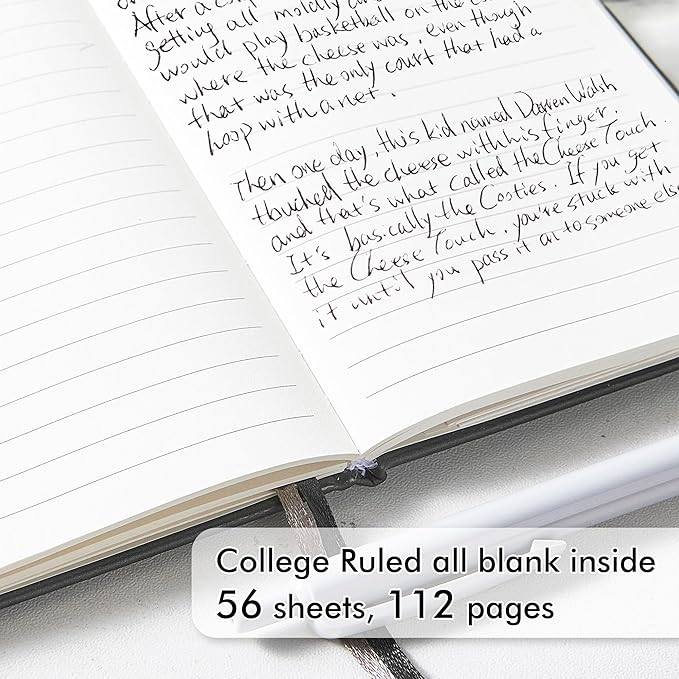 After a
getting all moldy and
would play basketball on the
where the cheese was, even though
that was the only court that had a
hoop with a net.
Then one day, this kid named Darren Walsh
touched the cheese with his finger.
and that's what called the Cheese Touch.
It's basically the Cooties. If you get
the Cheese Touch, you're stuck with
it until you pass it on to someone else
College Ruled all blank inside
56 sheets, 112 pages